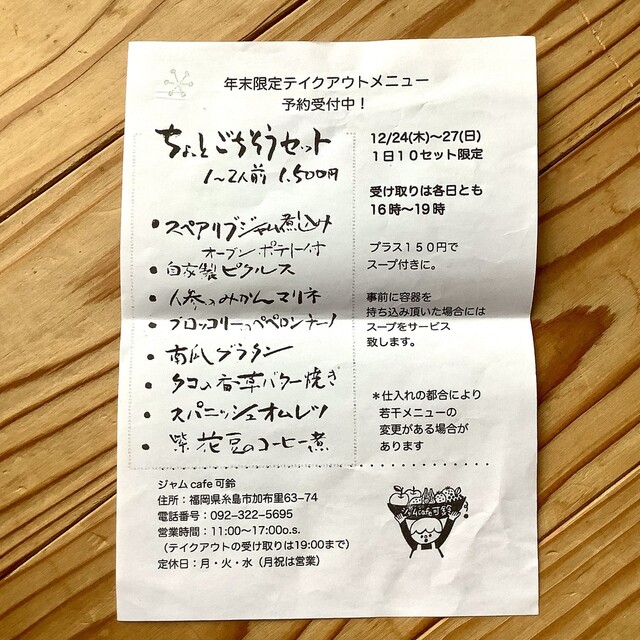 年末限定テイクアウトメニュー
予約受付中！
ちょっとごちそうセット
1〜2人前 1,500円
• スペアリブジャム煮込み
オーブンポテト付
• 自家製ピクルス
• 人参のみかんマリネ
• ブロッコリーのペペロンチーノ
• 南瓜グラタン
• タコの香草バター焼き
• スパニッシュオムレツ
• 紫花豆のコーヒー煮
12/24(木)〜27(日)
1日10セット限定
受け取りは各日とも
16時〜19時
プラス150円で
スープ付きに。
事前に容器を
持ち込み頂いた場合には
スープをサービス
致します。
＊仕入れの都合により
若干メニューの
変更がある場合が
あります
ジャムcafe可鈴
住所：福岡県糸島市加布里63-74
電話番号：092-322-5695
営業時間：11:00〜17:00o.s.
（テイクアウトの受け取りは19:00まで）
定休日：月・火・水（月祝は営業）
ジャムcafe可鈴